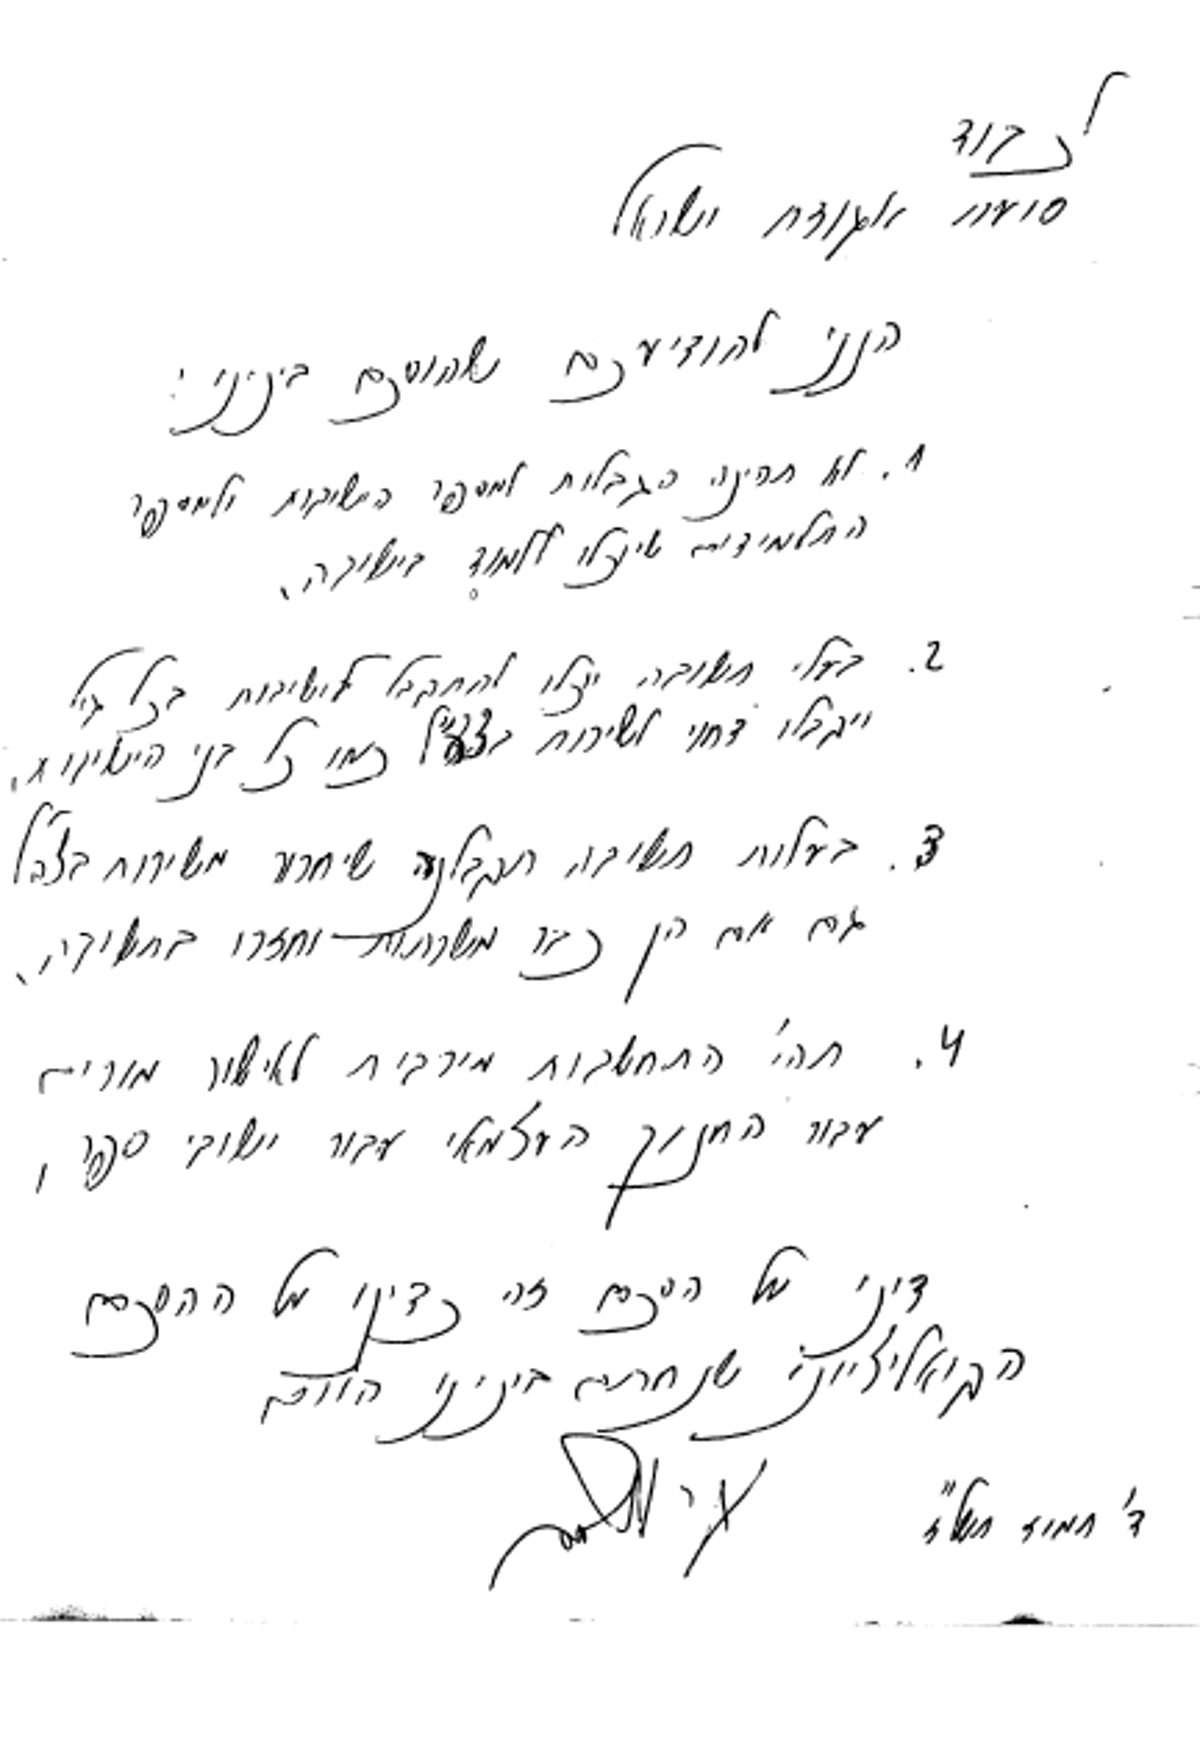 לכבוד
סיעת אגודת ישראל
הנני להודיעכם שהוסכם בינינו:
1. לא תהינה הגבלות למספר הישיבות ולמספר
התלמידים שיוכלו ללמוד בישיבה.
2. בעלי תשובה יוכלו להתקבל לישיבות בכל גיל
ויקבלו דחוי לשירות בצה"ל כמו כל בני הישיבות.
3. בעלות תשובה תקבלנה שיחרור משירות בצה"ל
גם אם הן כבר משרתות וחזרו בתשובה.
4. תהי' התחשבות מירבית לאישור מורים
עבור החנוך העצמאי עבור ישובי ספר,
דינו של הסכם זה כדינו של ההסכם
הקואליציוני שנחתם בינינו היום
ד' תמוז תשל"ז